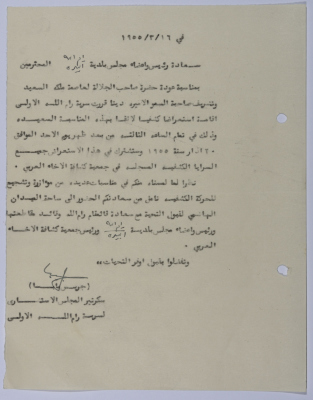 في ١٦/٣/١٩٥٥
سعادة رئيس واعضاء مجلس بلدية المحترمين
بمناسبة عودة حضرة صاحب الجلالة لعاصمة ملكه السعيد
وتشريف صاحبة السمو الاميرة دينا قررت سرية رام الله الاولى
اقامة استعراضا كشفيا لائقا بهذه المناسبة السعيده
وذلك في تمام الساعه الثالثه من بعد ظهر يوم الاحد الموافق
٢٠ اذار سنة ١٩٥٥ وستشترك في هذا الاستعراض جميع
السرايا الكشفيه المسجله في جمعية كشافة الاخاء العربي ٠
نظرا لما لمسناه منكم في مناسبات عديده من موازرة وتشجيع
للحركة الكشفيه نأمل من سعادتكم الحضور الى ساحة الميدان
لقبول التحية مع سعادة قائمقام رام الله وقائد مقاطعتها
ورئيس واعضاء مجلس بلدية ورئيس جمعية كشافة الاخاء
العربي ٠
وتفضلوا بقبول اوفر التحيات ،،
سكرتير المجلس الاستشاري
لسرية رام الله الاولى